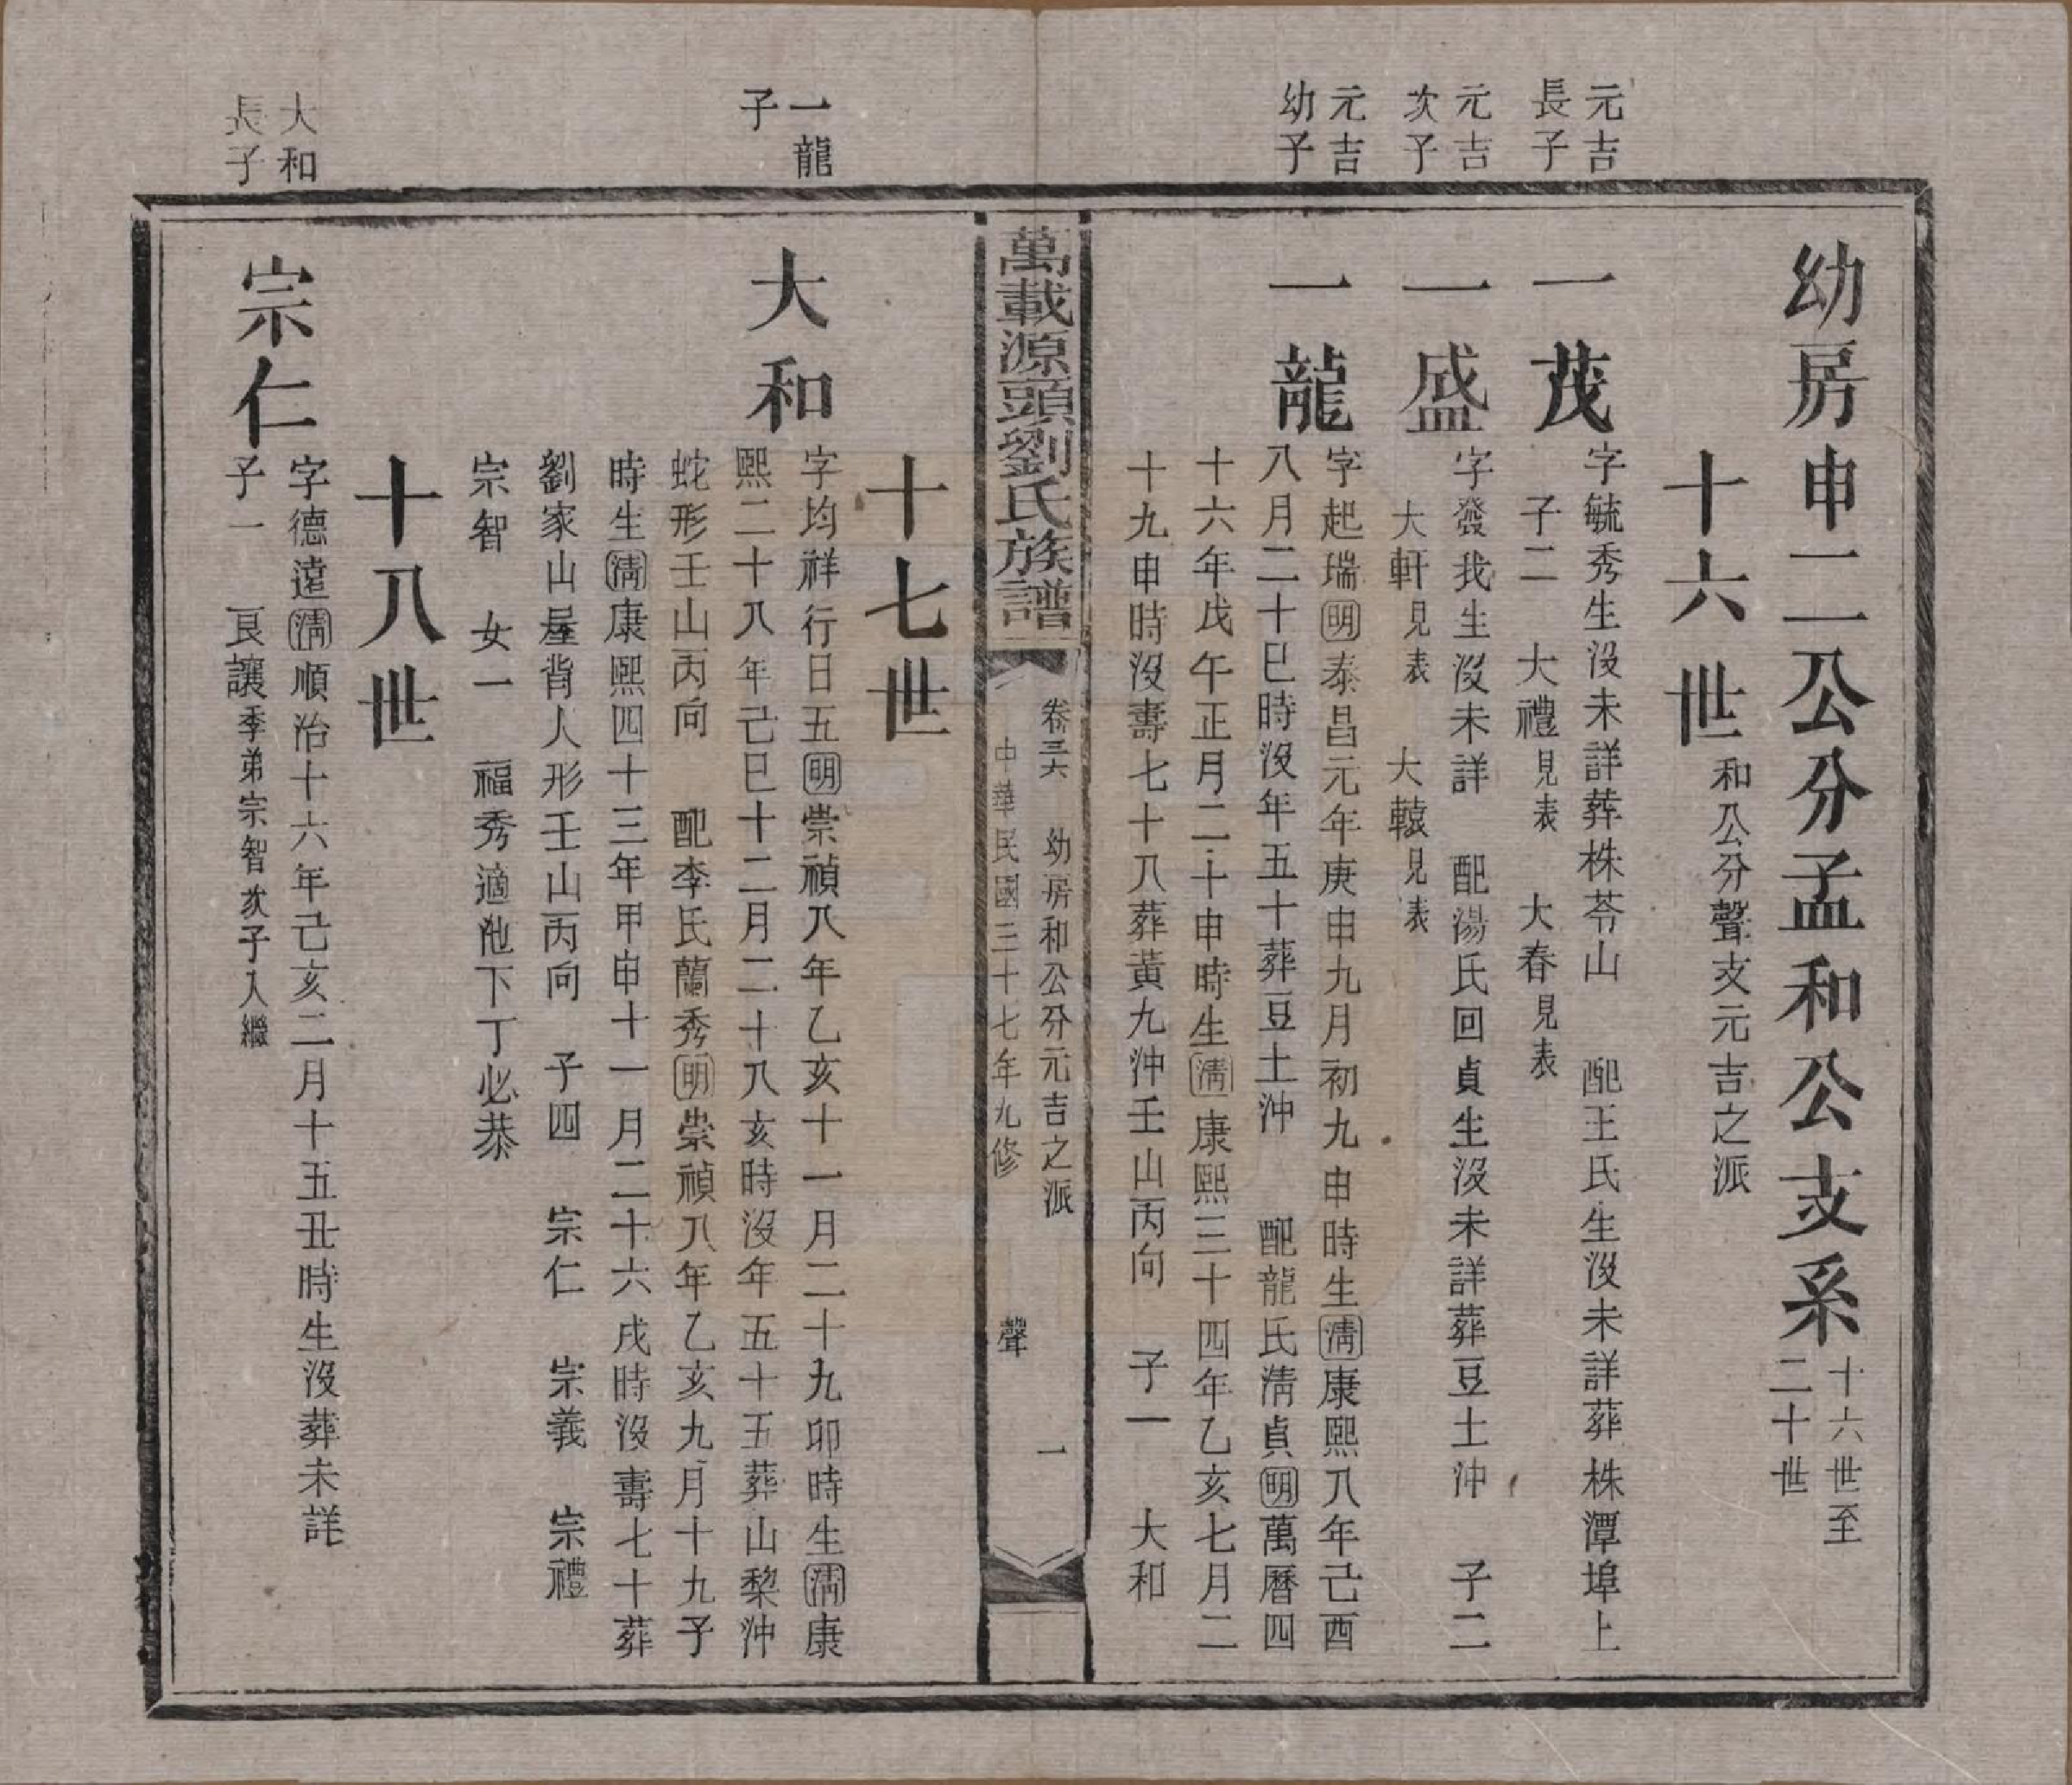 幼房申二公分孟和公支系十六世至二十世
十六世和公分聲支元吉之派
元吉長子
一茂字毓秀生沒未詳葬株苓山　配王氏生沒未詳葬株潭埠上
子二　大禮見表　大春見表
元吉次子
一盛字發我生沒未詳　配湯氏回貞生沒未詳葬豆土沖　子二
大軒見表　大轅見表
元吉幼子
一龍字起瑞明泰昌元年庚申九月初九申時生清康熙八年己酉
八月二十巳時沒年五十葬豆土沖　配龍氏清貞明萬曆四
十六年戊午正月二十申時生清康熙三十四年乙亥七月二
十九申時沒壽七十八葬黃九沖壬山丙向　子一　大和
萬載源頭劉氏族譜
卷三六　幼房和公分元吉之派　一
中華民國三十七年九修　聲
十七世
一龍子
大和字均祥行日五明崇禎八年乙亥十一月二十九卯時生清康
熙二十八年己巳十二月二十八亥時沒年五十五葬山棃沖
蛇形壬山丙向　配李氏蘭秀明崇禎八年乙亥九月十九子
時生清康熙四十三年甲申十一月二十六戌時沒壽七十葬
劉家山屋背人形壬山丙向　子四　宗仁　宗義　宗禮
宗智　女一　福秀適池下丁必恭
十八世
大和長子
宗仁字德遠清順治十六年己亥二月十五丑時生沒葬未詳
子一　良讓季弟宗智次子入繼